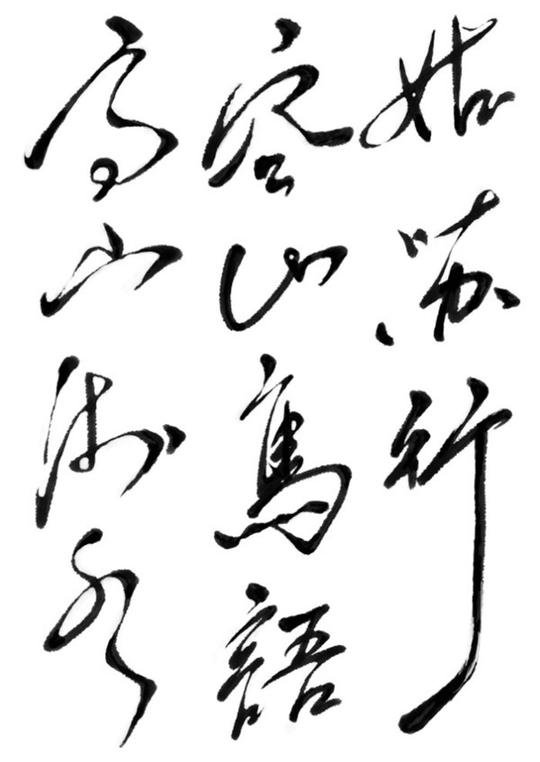 姑苏行
空山鸟語
高山流水